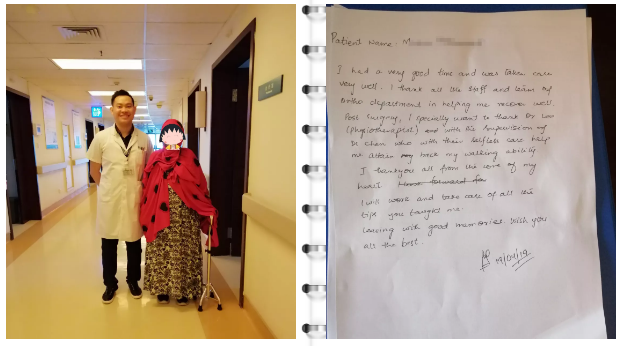 Patient Name: M
I had a very good time and was taken care
very well. I thank all the staff and team of
ortho department in helping me recover well.
Post surgery, I specially want to thank Dr
(Physiotherapist) and with his supervision of
Dr Chen who with their selfless care help
me attain my back my walking ability
I thankyou all from the core of my
heart I look forward to
I will work and take care of all the
tips you taught me.
Leaving with good memories. Wish you
all the best.